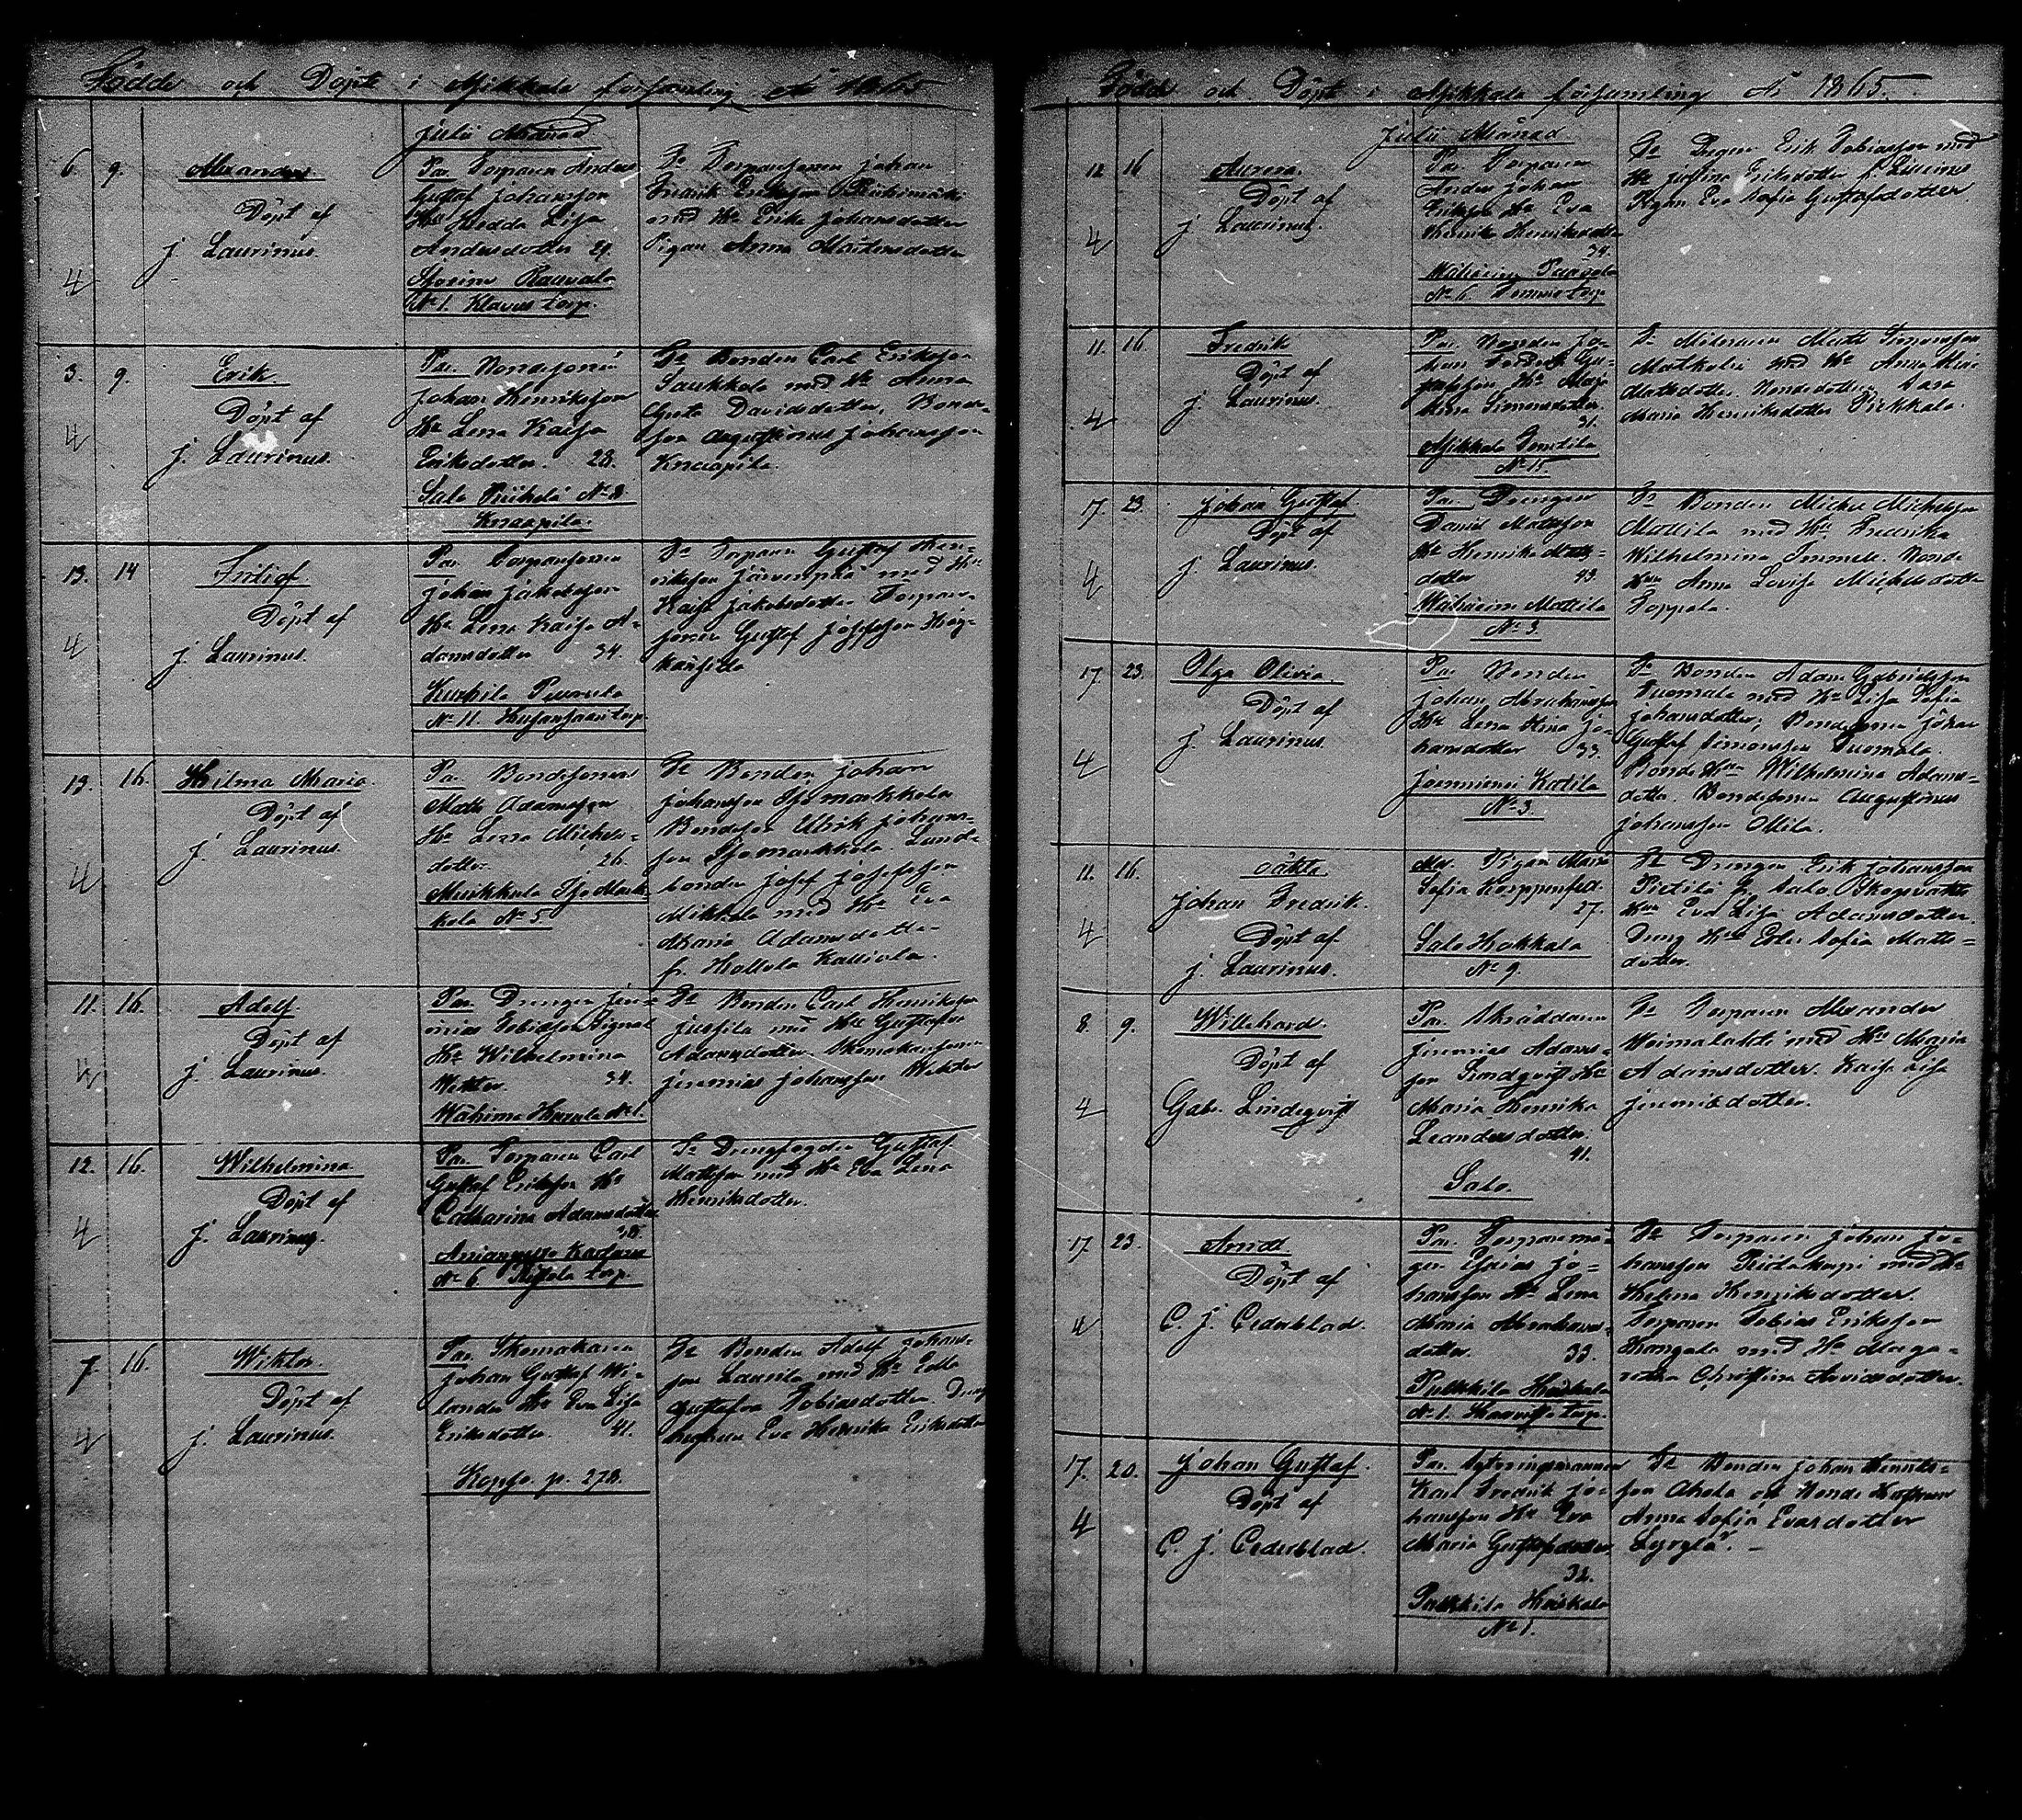 Födde och Döpte i Ajkkala församling År 1865
Julii Månad
6. 9. Alexander
Döpt af
J. Laurinus.
4
Par. Torparen Anders
Gustaf Johansson
Hu Hedda Lisa
Andersdotter 29.
Rauvola
No 1. Klavus torp.
Fr Torparesonen Johan
Fredrik Eriksson
med Hu Erika Johansdotter
Pigan Anna Mårtensdotter
3. 9. Erik.
Döpt af
J. Laurinus.
4
Par. Bondesonen
Johan Henriksson
Hu Lena Kaisa
Eriksdotter. 28.
Salo No 8
Knaapila.
Fr Bonden Carl Eriksson
Saukkola med Hu Anna
Greta Davidsdotter, Bonde-
son Augustinus Johansson
Knaapila.
13. 14 Fritiof.
Döpt af
J. Laurinus.
4
Par. Torparesonen
Johan Jakobsson
Hu Lena Kaisa A-
damsdotter 34.
Kurhila
No 11. torp.
Fr Torparen Gustaf Hen-
riksson Järvenpää med Hu
Kaisa Jakobsdotter Torpare-
sonen Gustaf Josefsson
13. 16. Hilma Maria.
Döpt af
J. Laurinus.
4
Par. Bondesonen
Matts Adamsson
Hu Lena Michels-
dotter. 26.
Muikkula Iso Mark-
kola No 5.
Fr Bonden Johan
Johansson Isomarkkola
Bondeson Ulrik Johans-
son Isomarkkola. Lands-
bonden Josef Josefsson
Mikkola med Hu Eva
Maria Adamsdotter
fr. Hollola Kalliola.
11. 16. Adolf.
Döpt af
J. Laurinus.
4
Par. Drengen Jere-
mias Tobiasson Signal
Hu Wilhelmina
Wektor. 34.
No 1.
Fr Bonden Carl Henriksson
Jussila med Hu Gustafva
Adamsdotter. Skomakaresonen
Jeremias Johansson Wektor
12. 16. Wilhelmina
Döpt af
J. Laurinus.
4
Par. Torparen Carl
Gustaf Eriksson Hu
Catharina Adamsdotter
No 6. torp.
Fr Drengfogden Gustaf
Mattsson med Hu Eva Lena
Henriksdotter.
7. 16. Wiktor.
Döpt af
J. Laurinus.
4
Par. Skomakaren
Johan Gustaf Wi-
lander Hu Eva Lisa
Eriksdotter. 41.
p. 278.
Fr Bonden Adolf Johans-
son Laurila med Hu Edla
Gustafva Tobiasdotter. Dreng
Eva Henrika Eriksdotter
Födde och Döpte i Ajkkala församling År 1865.
Julii Månad
12 16 Aurora.
Döpt af
J. Laurinus.
4
Par. Torparen
Anders Johan
Eriksson Hu Eva
Henrika Henriksdotter
34.
No 6. torp
Fr Drengen Erik Tobiasson med
Hu Justina Eriksdotter
Pigan Eva Sofia Gustafsdotter.
11. 16. Fredrik
Döpt af
J. Laurinus.
4
Par. Bonden Jo-
han Fredrik Gu-
stafsson Hu Maja
Stina Simonsdotter.
31.
No 15.
Fr Matts Simonsson
med Hu Anna
Mattsdotter. Bondedottren Sara
Maria Henriksdotter Pirkkala.
17. 23. Johan Gustaf
Döpt af
J. Laurinus.
4
Par. Drengen
Daniel Mattsson
Hu Henrika Matts-
dotter 43.
Mattila
No 3.
Fr Bonden Michel Michelsson
Mattila med Hu Fredrika
Wilhelmina Immele. Bonde
Hun Anna Lovisa Michelsdotter
Toppola.
17. 23. Olga Olivia.
Döpt af
J. Laurinus.
4
Par. Bonden
Johan Abrahamsson
Hu Lena Stina Jo-
hansdotter 33.
Katila
No 3.
Fr Bonden Adam Gabrielsson
Tuomala med Hu Lisa Sofia
Johansdotter; Bondesonen Johan
Gustaf Simonsson Tuomala.
Bonde Hun Wilhelmina Adams-
dotter. Bondesonen Augustinus
Johansson Ollila.
11. 16. oäkta
Johan Fredrik.
Döpt af
J. Laurinus.
4
Mod. Pigan Maria
Sofia
27.
Salo
No 9.
Fr Drengen Erik Johansson
Pietilä fr. Salo Skogvakts
Hun Eva Lisa Adamsdotter.
Dreng Hun Edla Sofia Matts-
dotter.
8. 9. Willehard.
Döpt af
Gabr. Lindqvist
4
Par. Skräddaren
Jeremias Adams-
son Lindqvist Hu
Maria Henrika
Leandersdotter.
41.
Salo.
Fr Torparen Alexander
Woimalahti med Hu Maria
Adamsdotter. Kaisa Lisa
Jeremiædotter.
17. 23.
Döpt af
C. J. Cederblad.
4
Par. Torparemå-
gen Esaias Jo-
hansson Hu Lena
Maria Abrahams-
dotter. 33.
Pulkkila Heiskala
No 1. torp.
Fr Torparen Johan Jo-
hansson med Hu
Helena Henriksdotter.
Torparen Tobias Eriksson
Kongala med Hu Marga-
retha Christina Arvidsdotter.
17. 20. Johan Gustaf.
Döpt af
C. J. Cederblad.
4
Par. Sytningsmannen
Karl Fredrik Jo-
hansson Hu Eva
Maria Gustafsdotter.
32.
Pulkkila Heiskala
No 1.
Fr Bonden Johan Henriks-
son Ahola och Bonde Hustrun
Anna Sofia Evasdotter